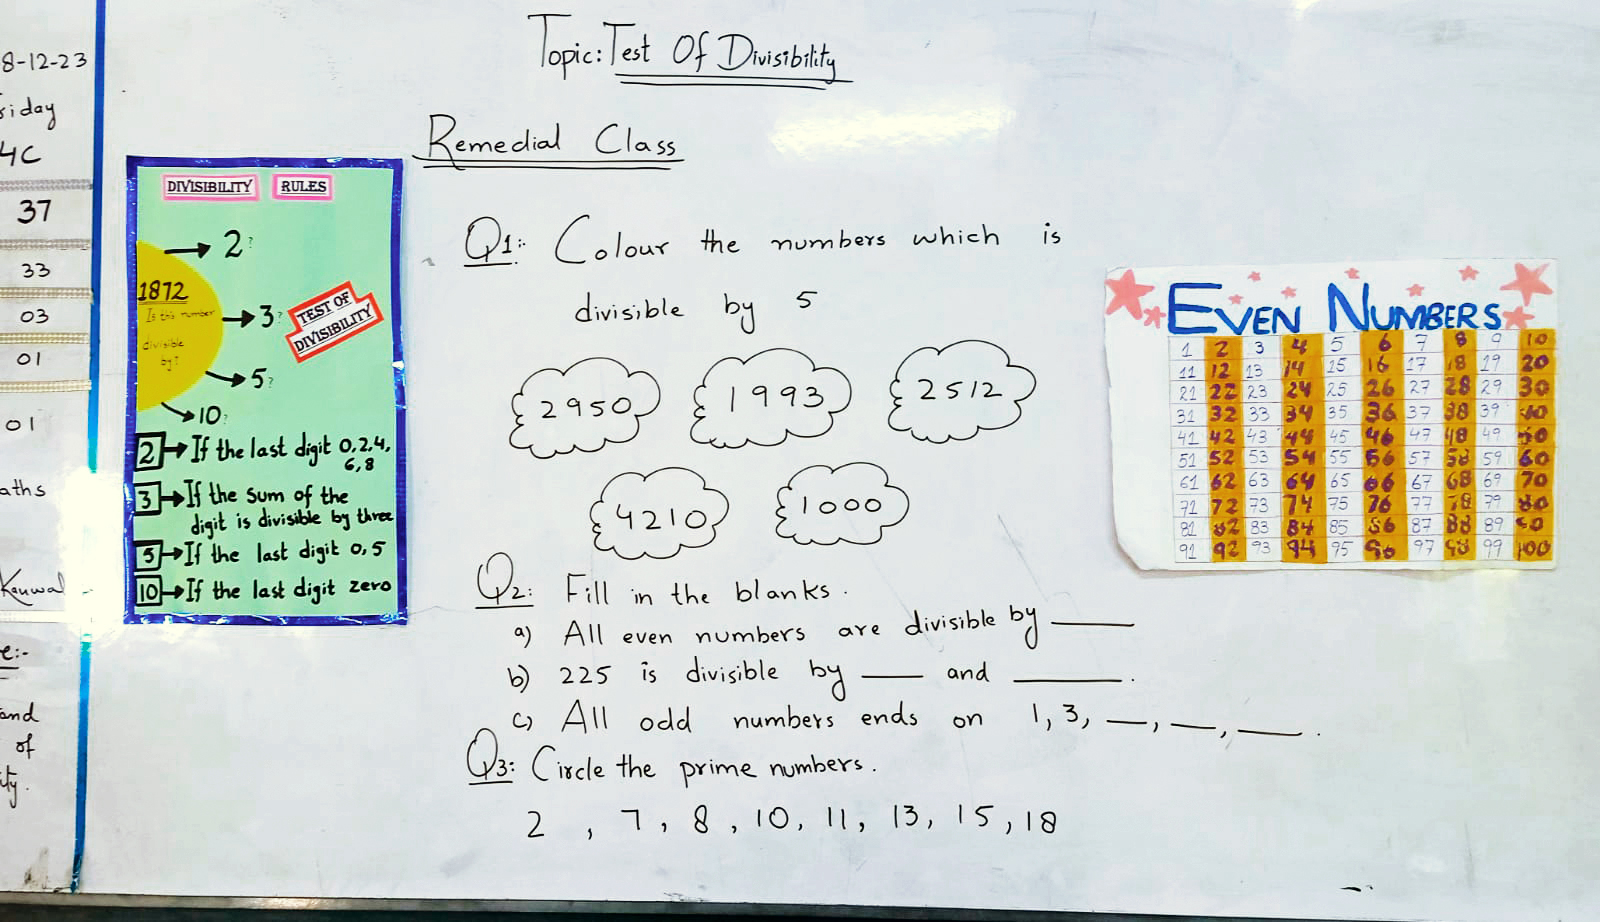 8-12-23
4C
37
33
03
01
01
Kanwal
of
Topic: Test Of Divisibility
Remedial Class
DIVISIBILITY RULES
2?
1872
Is this number
divisible
by?
3?
5?
10?
TEST OF
DIVISIBILITY
2 → If the last digit 0,2,4,
6,8
3 → If the sum of the
digit is divisible by three
5 → If the last digit 0,5
10 → If the last digit zero
Q1: Colour the numbers which is
divisible by 5
2950 1993 2512
4210 1000
Q2: Fill in the blanks.
a) All even numbers are divisible by ____
b) 225 is divisible by ____ and ____.
c) All odd numbers ends on 1, 3, __, __, __.
Q3: Circle the prime numbers.
2, 7, 8, 10, 11, 13, 15, 18
EVEN NUMBERS
1 2 3 4 5 6 7 8 9 10
11 12 13 14 15 16 17 18 19 20
21 22 23 24 25 26 27 28 29 30
31 32 33 34 35 36 37 38 39 40
41 42 43 44 45 46 47 48 49 50
51 52 53 54 55 56 57 58 59 60
61 62 63 64 65 66 67 68 69 70
71 72 73 74 75 76 77 78 79 80
81 82 83 84 85 86 87 88 89 90
91 92 93 94 95 96 97 98 99 100